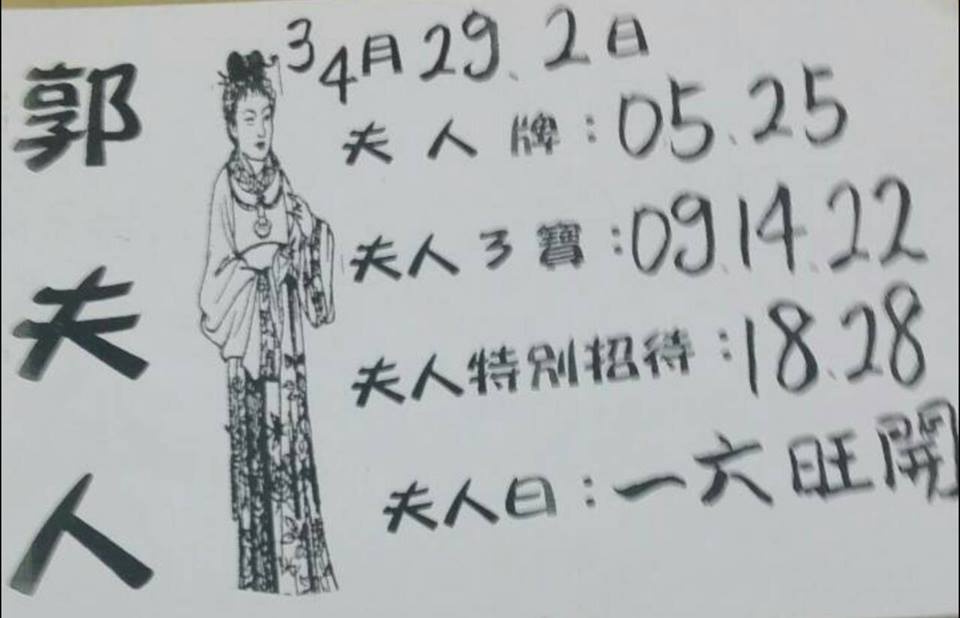 郭夫人
3 4月29.2日
夫人牌:05.25
夫人3寶:09.14.22
夫人特別招待:18.28
夫人日:一六旺開